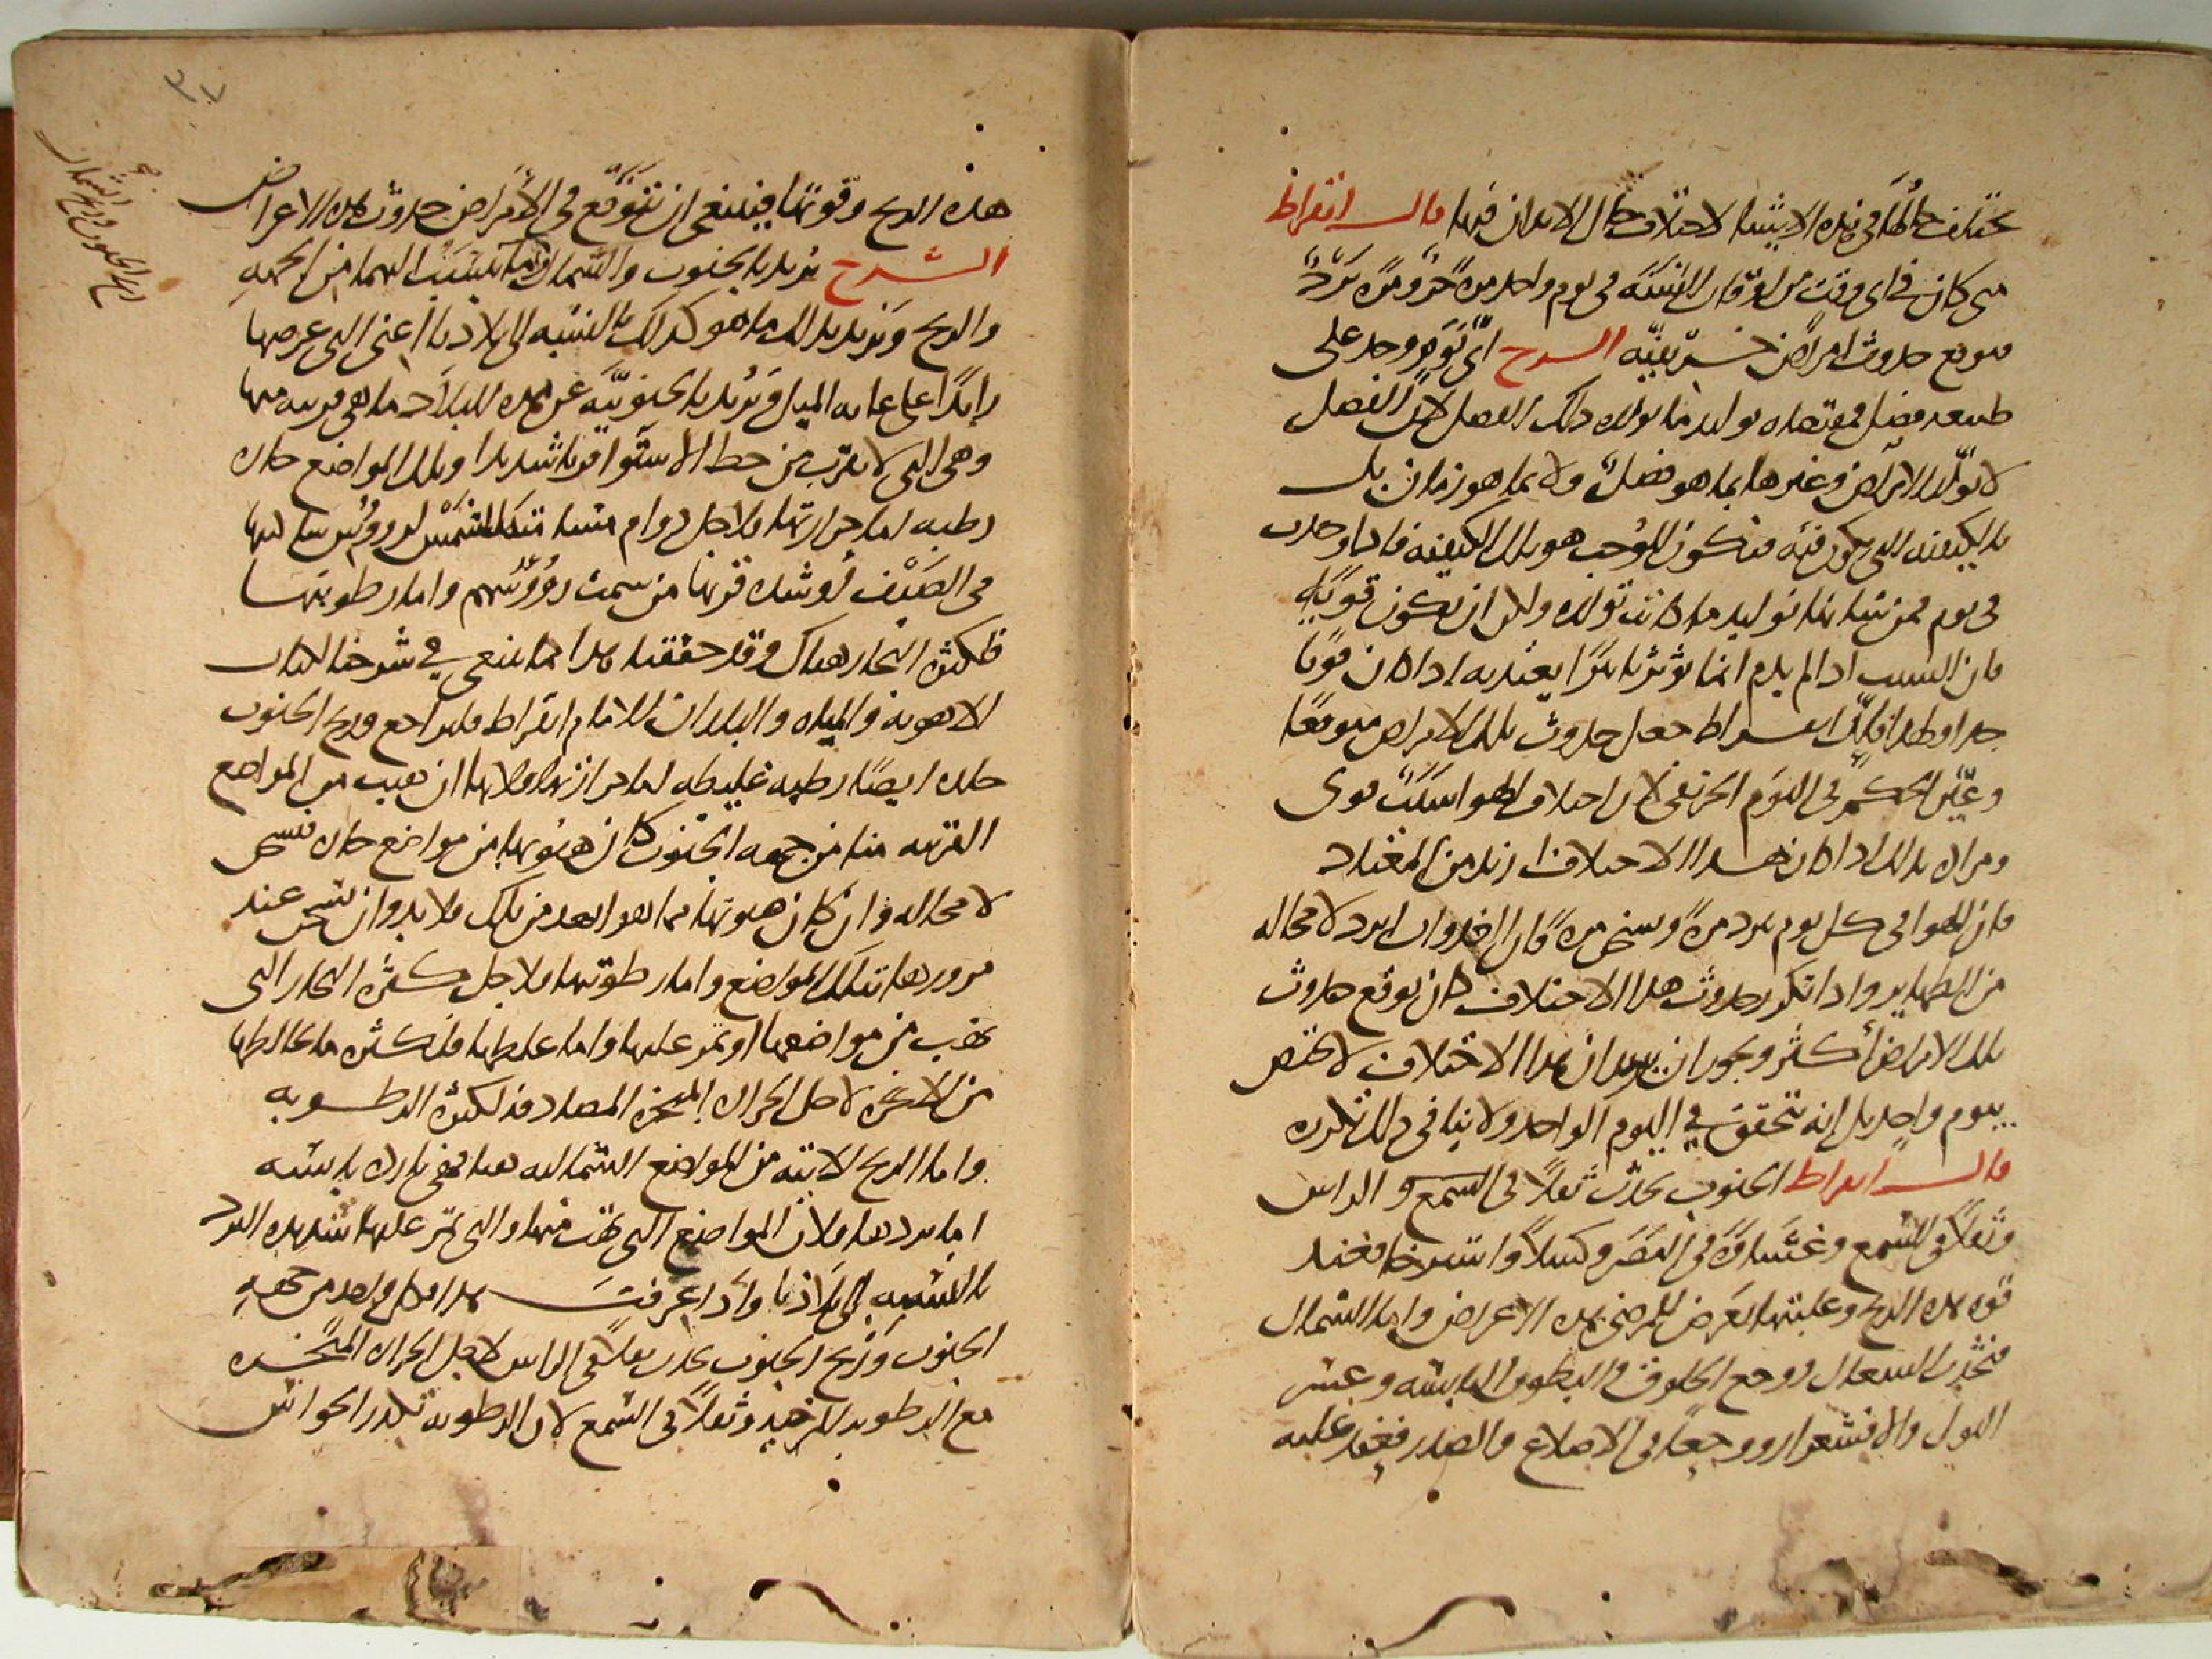 تختلف حالها في هذه الاشيا لاختلاف حال الابدان فيها قال ابقراط
متى كان في اي وقت من اوقات السنة في يوم واحد مرة حر ومرة برد
فتوقع حدوث امراض خريفية الشرح اي يوم وجد على
طبيعة فصل فمقتضاه توليد ما يولده ذلك الفصل لان الفصل
لا يولد الامراض وغيرها بما هو فصل ولا بما هو زمان بل
بالكيفية التي تكون فيه فيكون الموجب هو تلك الكيفية فاذا وجدت
في يوم فمن شانها توليد ما كانت تولده ولكن ان تكون قوية
فان السبب اذا لم يدم انما يؤثر اثرا يعتد به اذا كان قويا
جدا ولهذا فان ابقراط جعل حدوث تلك الامراض متوقعا
وعين الحكم في اليوم الخريفي لان اختلاف الهوا سبب قوي
ومراده بذلك اذا كان هذا الاختلاف ازيد من المعتاد
فان الهوا في كل يوم يبرد مرة ويسخن مرة فان الغدوات ابرد لا محالة
من الظهاير واذا تكرر حدوث هذا الاختلاف كان توقع حدوث
تلك الامراض أكثر ويجوز ان يريد ان هذا الاختلاف لا يختص
بيوم واحد بل انه يتحقق في اليوم الواحد ولا ينافي ذلك تكرره
قال ابقراط الجنوب يحدث ثقلا في السمع و الراس
وثقلا في السمع وغشاوة في البصر وكسلا واسترخا فعند
قوة هذه الريح وغلبتها يعرض للمرضى هذه الاعراض واما الشمال
فتحدث السعال ووجع الحلوق والبطون اليابسة وعسر
البول والاقشعرار ووجعا في الاضلاع والصدر فعند غلبة
٣٧
هذه الريح وقوتها فينبغي ان يتوقع في الامراض حدوث هذه الاعراض
الشرح يريد بالجنوب والشمال ما ينسب اليهما من الجهة
والريح ويريد بذلك ما هو كذلك بالنسبة الى بلادنا اعني التي عرضها
زايدا على غاية الميل ويريد بالجنوبية عن هذه البلاد ما هي قريبة منها
وهي التي لا تقرب من خط الاستوا قربا شديدا وتلك المواضع حارة
رطبة اما حرارتها فلاجل دوام الشمس لرووس ساكنيها
في الصيف او شدة قربها من سمت رؤوسهم واما رطوبتها
فلكثرة البخار هناك وقد حققنا هذا كما ينبغي في شرحنا لكتاب
الاهوية والمياه والبلدان للامام ابقراط فليراجع وريح الجنوب
حارة ايضا رطبة غليظة اما حرارتها فلانها ان هبت من المواضع
القريبة منا من جهة الجنوب كان هبوبها من مواضع حارة فتسخن
لا محالة وان كان هبوبها مما هو ابعد من تلك فلا بد وان تسخن عند
مرورها بتلك المواضع واما رطوبتها فلاجل كثرة البخار التي
تهب من مواضعها او تمر عليها واما غلظها فلكثرة ما يخالطها
من الابخرة لاجل الحرارة المبخرة المصادفة لكثرة الرطوبة
واما الريح الاتية من المواضع الشمالية عنا فهي باردة يابسة
اما بردها فلان المواضع التي تهب منها والتي تمر عليها شديدة البرد
بالنسبة الى بلادنا واذا عرفت هذا فكل واحد من جهة
الجنوب وريح الجنوب يحدث ثقلا في الراس لاجل الحرارة المبخرة
مع الرطوبة المرخية وثقلا في السمع لان الرطوبة تكدر الحواس